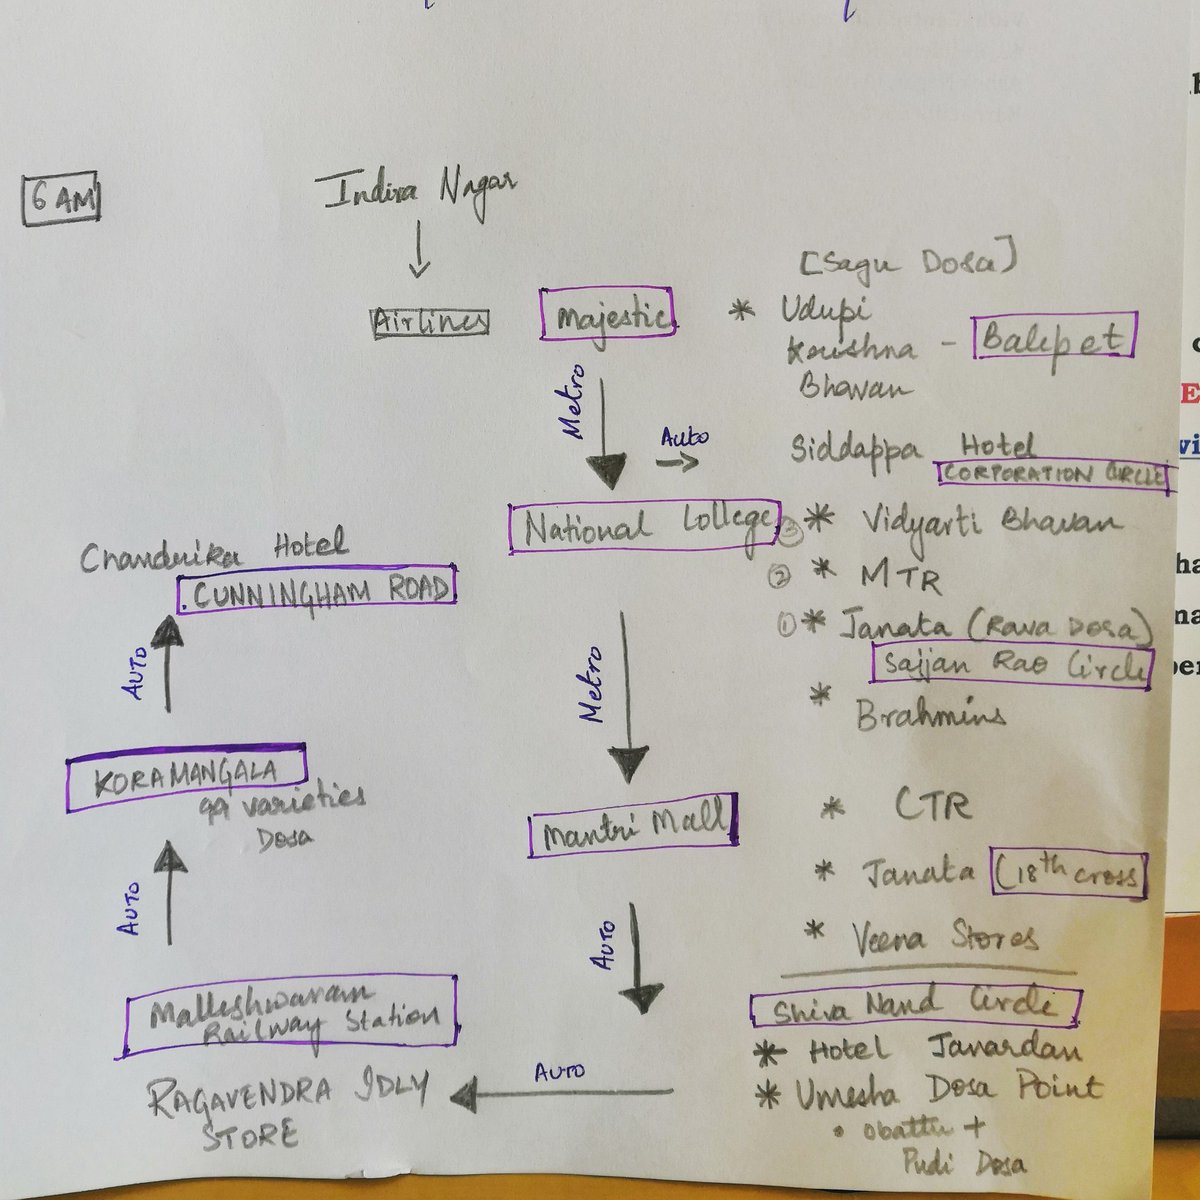 6 AM
Indira Nagar
Airlines
Majestic
[Sagu Dosa]
* Udupi
Krishna - Balepet
Bhavan
Metro
Auto
Siddappa Hotel
CORPORATION CIRCLE
National College
③ * Vidyarti Bhavan
② * MTR
① * Janata (Rava Dosa)
Sajjan Rao Circle
* Brahmins
Metro
Mantri Mall
* CTR
* Janata (18th cross
* Veena Stores
Auto
Shiva Nand Circle
* Hotel Janardan
* Umesha Dosa Point
• obattu +
Pudi Dosa
Auto
Malleshwaram
Railway Station
RAGAVENDRA IDLY
STORE
AUTO
KORAMANGALA
99 varieties
Dosa
AUTO
Chandrika Hotel
. CUNNINGHAM ROAD